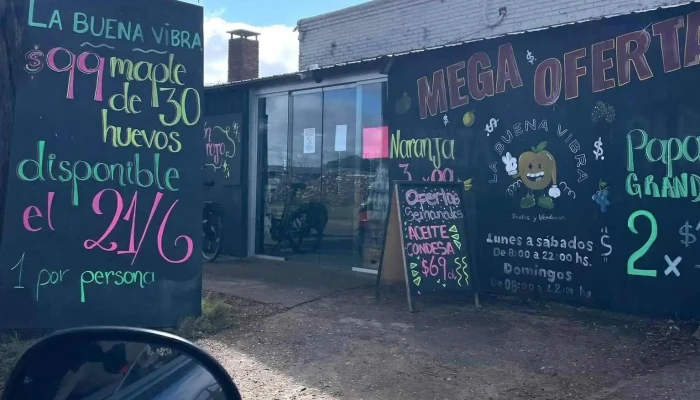 La BUENA VIBRA
$99 maple
de 30
huevos
disponible
el 21/6
1 por persona
MEGA OFERTA
Naranja
LA BUENA VIBRA
Frutas y Verduras
Lunes a sábados
De 8:00 a 22:00 hs.
Domingos
Ofertas
Semanales
ACEITE
CONDESA
$69 c/u
Papa
GRAND
2 x $